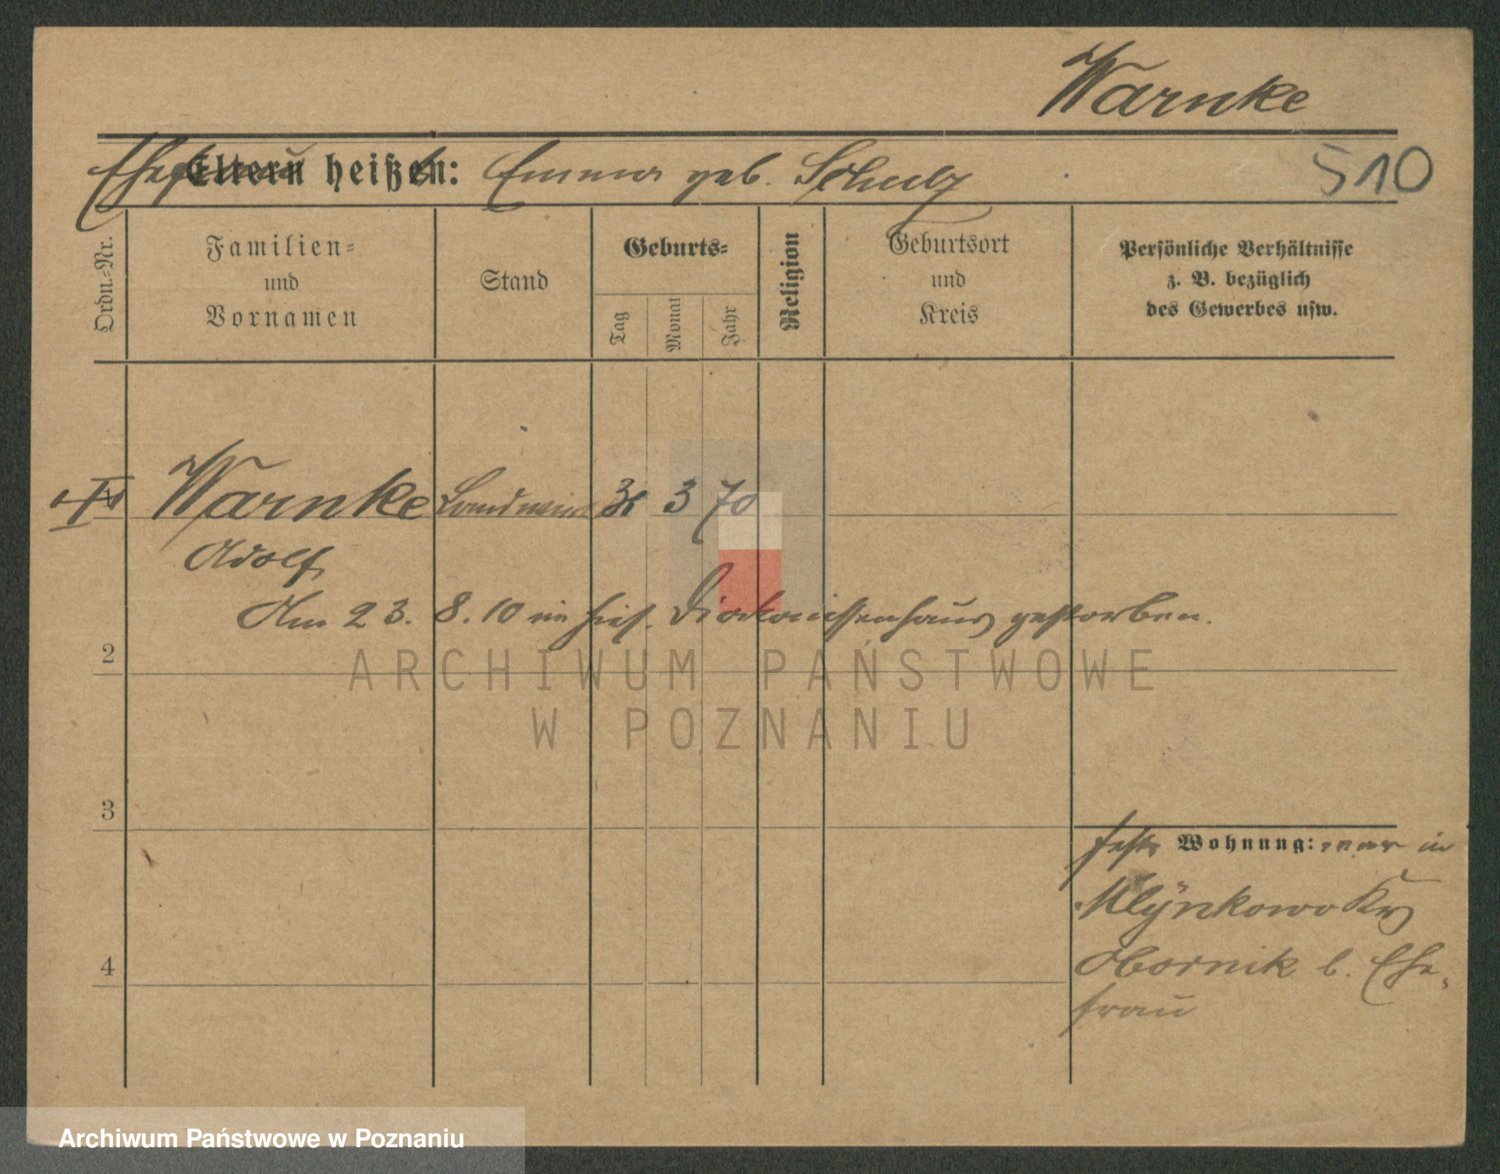 Warnke
Ehefrau heißt: Emma geb. Schulz
510
Ordn.=Nr.
Familien=
und
Vornamen
Stand
Geburts=
Tag
Monat
Jahr
Religion
Geburtsort
und
Kreis
Persönliche Verhältnisse
z. B. bezüglich
des Gewerbes usw.
Warnke Landwirt 3 70
Adolf
Am 23. 8. 10 im hies. Diakonissenhaus gestorben.
2
ARCHIWUM PAŃSTWOWE
W POZNANIU
3
feste Wohnung: war in
Mlynkowo Krs
4
Obornik b. Ehe-
frau
Archiwum Państwowe w Poznaniu